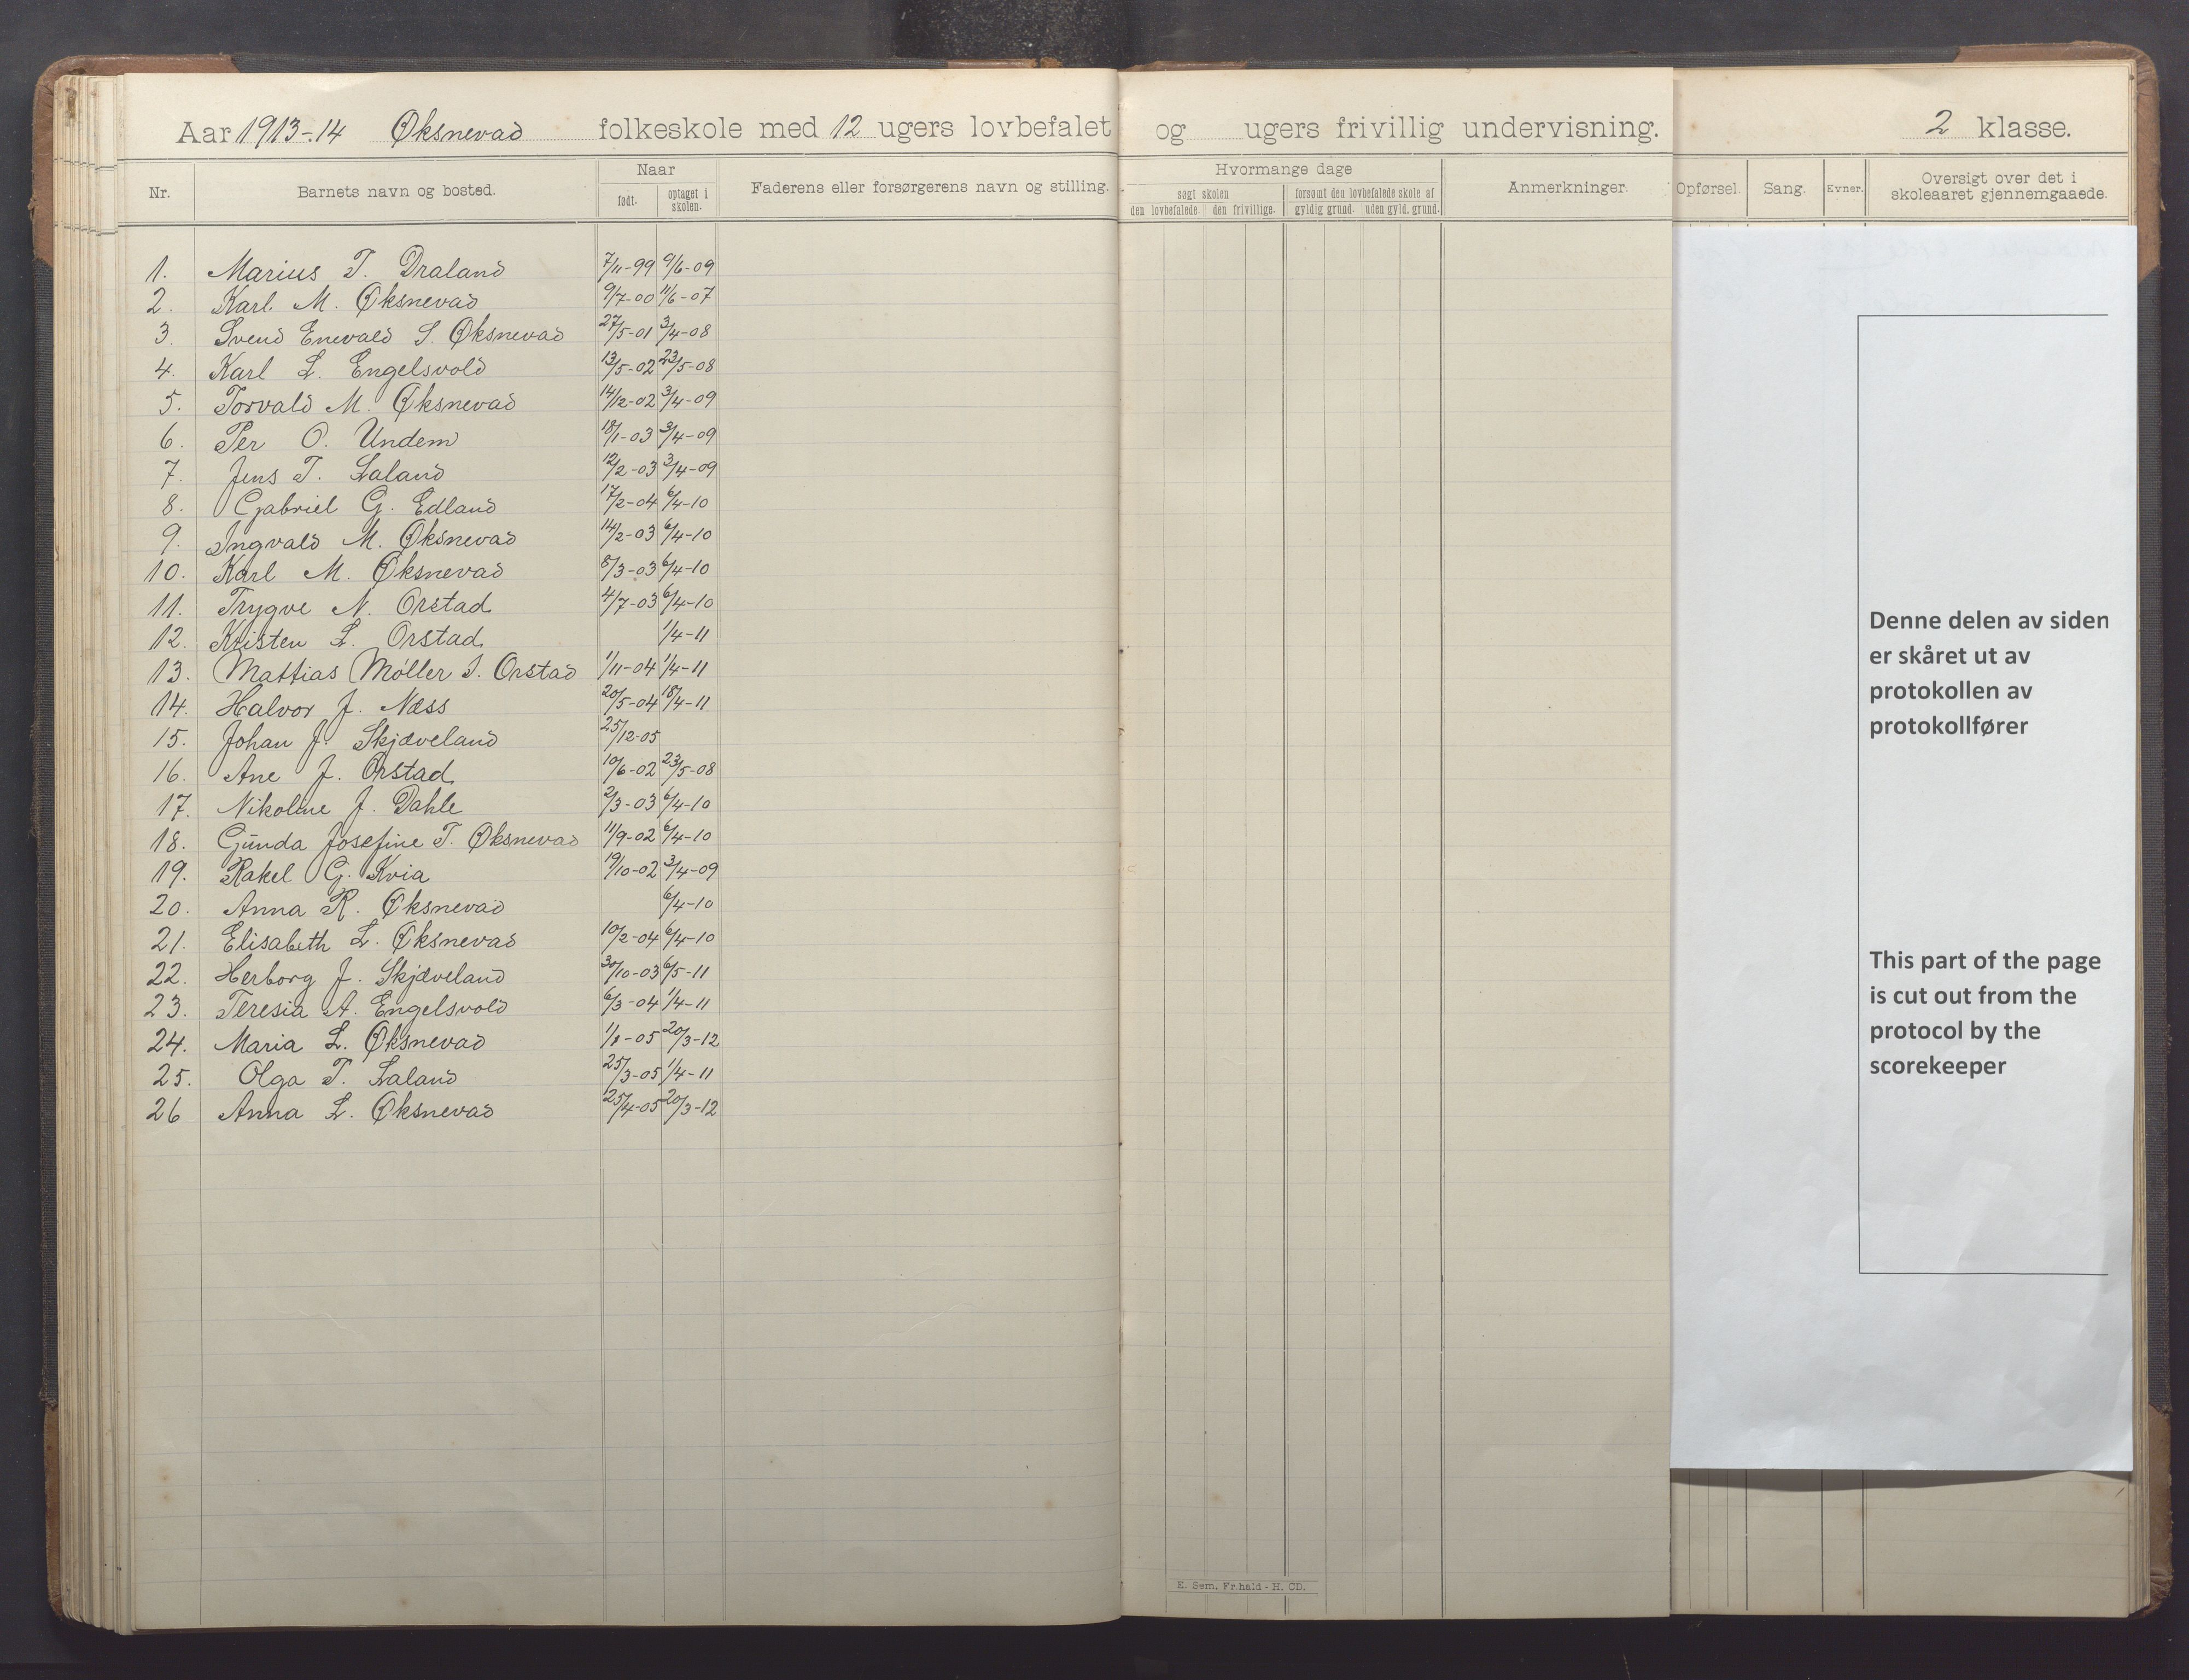 Aar 1913-14 Øksnevad folkeskole med 12 ugers lovbefalet og ugers frivillig undervisning. 2 klasse.
Nr. Barnets navn og bosted. Naar født. optaget i skolen. Faderens eller forsørgerens navn og stilling. Hvormange dage søgt skolen den lovbefalede. den frivillige. forsømt den lovbefalede skole af gyldig grund. uden gyld. grund. Anmerkninger. Opførsel. Sang. Evner. Oversigt over det i skoleaaret gjennemgaaede.
1. Marius T. Braland 7/11-99 9/6-09
2. Karl M. Øksnevad 9/7-00 11/6-07
3. Svend Enevald S. Øksnevad 27/5-01 3/4-08
4. Karl L. Engelsvold 13/5-02 23/5-08
5. Torvald M. Øksnevad 14/12-02 3/4-09
6. Per O. Undem 18/1-03 3/4-09
7. Jens T. Laland 12/2-03 3/4-09
8. Gabriel G. Edland 17/2-04 6/4-10
9. Ingvald M. Øksnevad 14/2-03 6/4-10
10. Karl M. Øksnevad 8/3-03 6/4-10
11. Trygve N. Orstad 4/7-03 6/4-10
12. Kristen L. Orstad 1/4-11
13. Mattias Møller S. Orstad 1/11-04 1/4-11
14. Halvor J. Næss 20/5-04 18/4-11
15. Johan J. Skjæveland 25/12-05
16. Ane J. Orstad 10/6-02 23/5-08
17. Nikoline J. Dahle 2/3-03 6/4-10
18. Gunda Josefine T. Øksnevad 11/9-02 6/4-10
19. Rakel G. Kvia 19/10-02 3/4-09
20. Anna R. Øksnevad 6/4-10
21. Elisabeth L. Øksnevad 10/2-04 6/4-10
22. Herborg J. Skjæveland 30/10-03 6/5-11
23. Teresia A. Engelsvold 6/3-04 1/4-11
24. Maria L. Øksnevad 1/1-05 20/3-12
25. Olga T. Laland 25/3-05 1/4-11
26 Anna L. Øksnevad 25/4-05 20/3-12
Denne delen av siden
er skåret ut av
protokollen av
protokollfører
This part of the page
is cut out from the
protocol by the
scorekeeper
E. Sem. Fr.hald - H. CD.